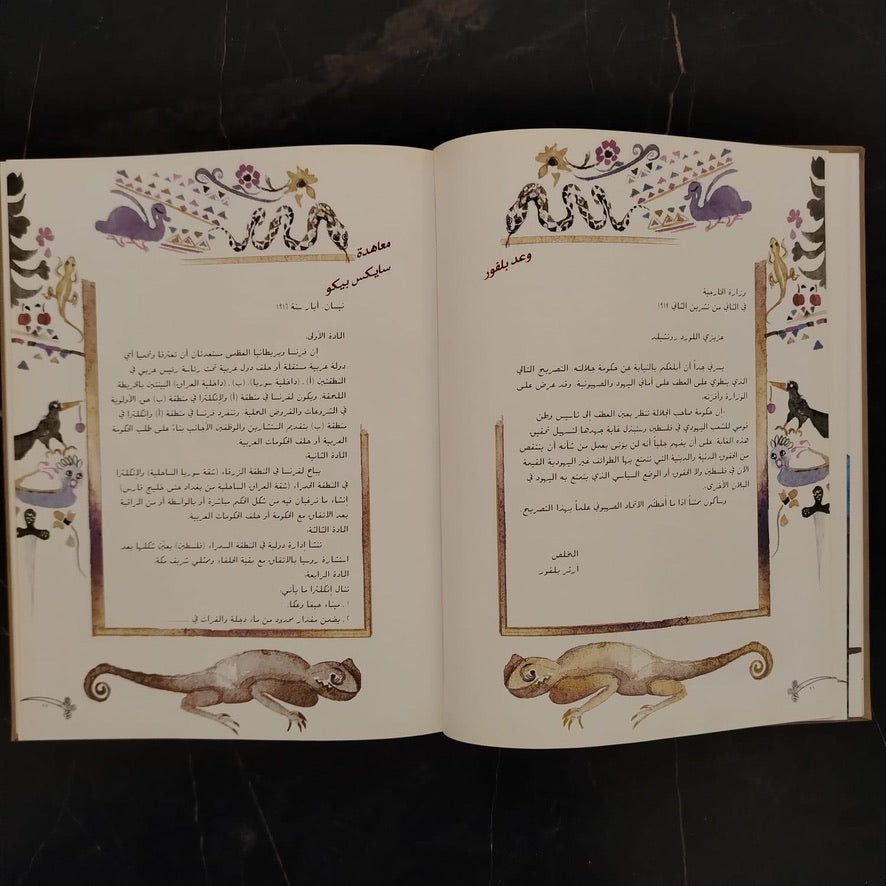 وعد بلفور
وزارة الخارجية
في الثاني من تشرين الثاني ١٩١٧
عزيزي اللورد روتشيلد
يسرني جداً أن أبلغكم بالنيابة عن حكومة جلالته، التصريح التالي
الذي ينطوي على العطف على أماني اليهود والصهيونية، وقد عرض على
الوزارة وأقرته.
إن حكومة صاحب الجلالة تنظر بعين العطف الى تأسيس وطن
قومي للشعب اليهودي في فلسطين وستبذل غاية جهدها لتسهيل تحقيق
هذه الغاية على أن يفهم جلياً أنه لن يؤتى بعمل من شأنه أن ينتقص
من الحقوق المدنية والدينية التي تتمتع بها الطوائف غير اليهودية المقيمة
الآن في فلسطين ولا الحقوق أو الوضع السياسي الذي يتمتع به اليهود في
البلدان الأخرى.
وسأكون ممتناً اذا ما أحطتم الاتحاد الصهيوني علماً بهذا التصريح.
المخلص
ارثر بلفور
معاهدة
سايكس بيكو
نيسان. أيار سنة ١٩١٦
المادة الأولى:
إن فرنسا وبريطانيا العظمى مستعدتان أن تعترفا وتحميا أي
دولة عربية مستقلة أو حلف دول عربية تحت رئاسة رئيس عربي في
المنطقتين (أ). (داخلية سوريا). (ب). (داخلية العراق) المبينتين بالخريطة
الملحقة ويكون لفرنسا في منطقة (أ) ولإنكلترا في منطقة (ب) حق الأولوية
في المشروعات والقروض المحلية. وتنفرد فرنسا في منطقة (أ) وإنكلترا في
منطقة (ب) بتقديم المستشارين والموظفين الأجانب بناءً على طلب الحكومة
العربية أو حلف الحكومات العربية.
المادة الثانية:
يباح لفرنسا في المنطقة الزرقاء (شقة سوريا الساحلية) ولإنكلترا
في المنطقة الحمراء (شقة العراق الساحلية من بغداد حتى خليج فارس)
إنشاء ما ترغبان فيه من شكل الحكم مباشرة أو بالواسطة أو من المراقبة
بعد الاتفاق مع الحكومة أو حلف الحكومات العربية.
المادة الثالثة:
تنشأ إدارة دولية في المنطقة السمراء (فلسطين) يعين شكلها بعد
استشارة روسيا بالاتفاق مع بقية الحلفاء وممثلي شريف مكة.
المادة الرابعة:
تنال إنكلترا ما يأتي:
١. ميناء حيفا وعكا.
٢. يضمن مقدار محدود من ماء دجلة والفرات في